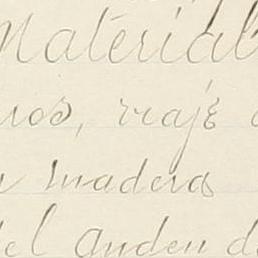 Material
nos, viaje
madera
del anden de